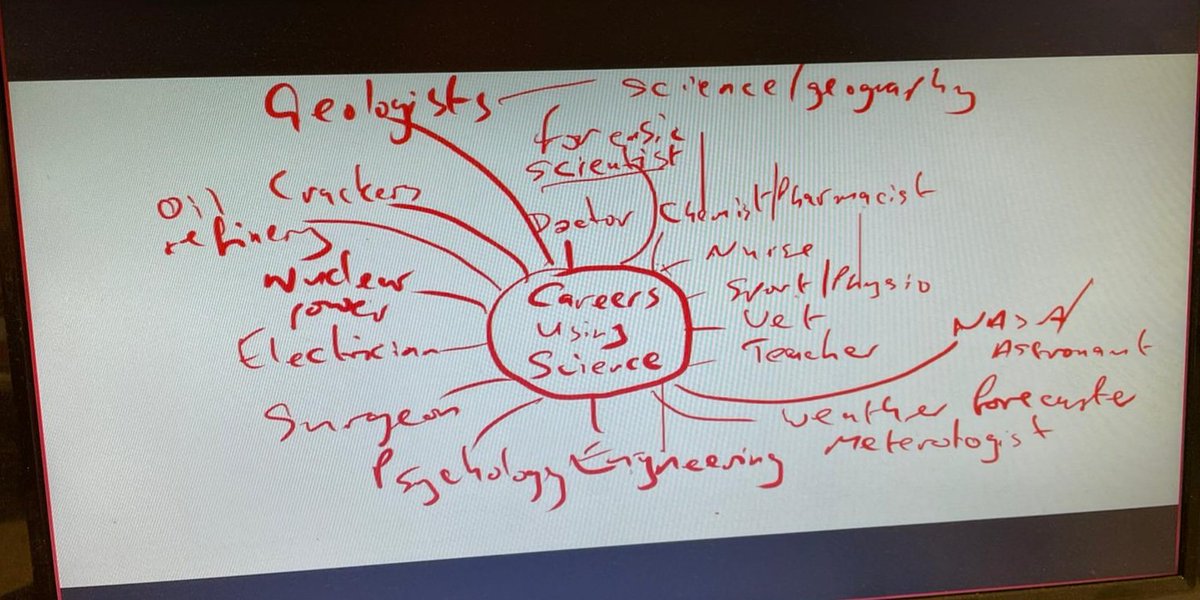 Geologists science/geography
forensic
scientist
Crackers
Oil
refinery
Doctor Chemist/Pharmacist
Nurse
Nuclear
power
Careers
using
Science
Sport/Physio
Vet
Teacher
NASA/
Astronant
Electrician
Surgeon
Weather forecaster
Meterologist
Psychology Engineering